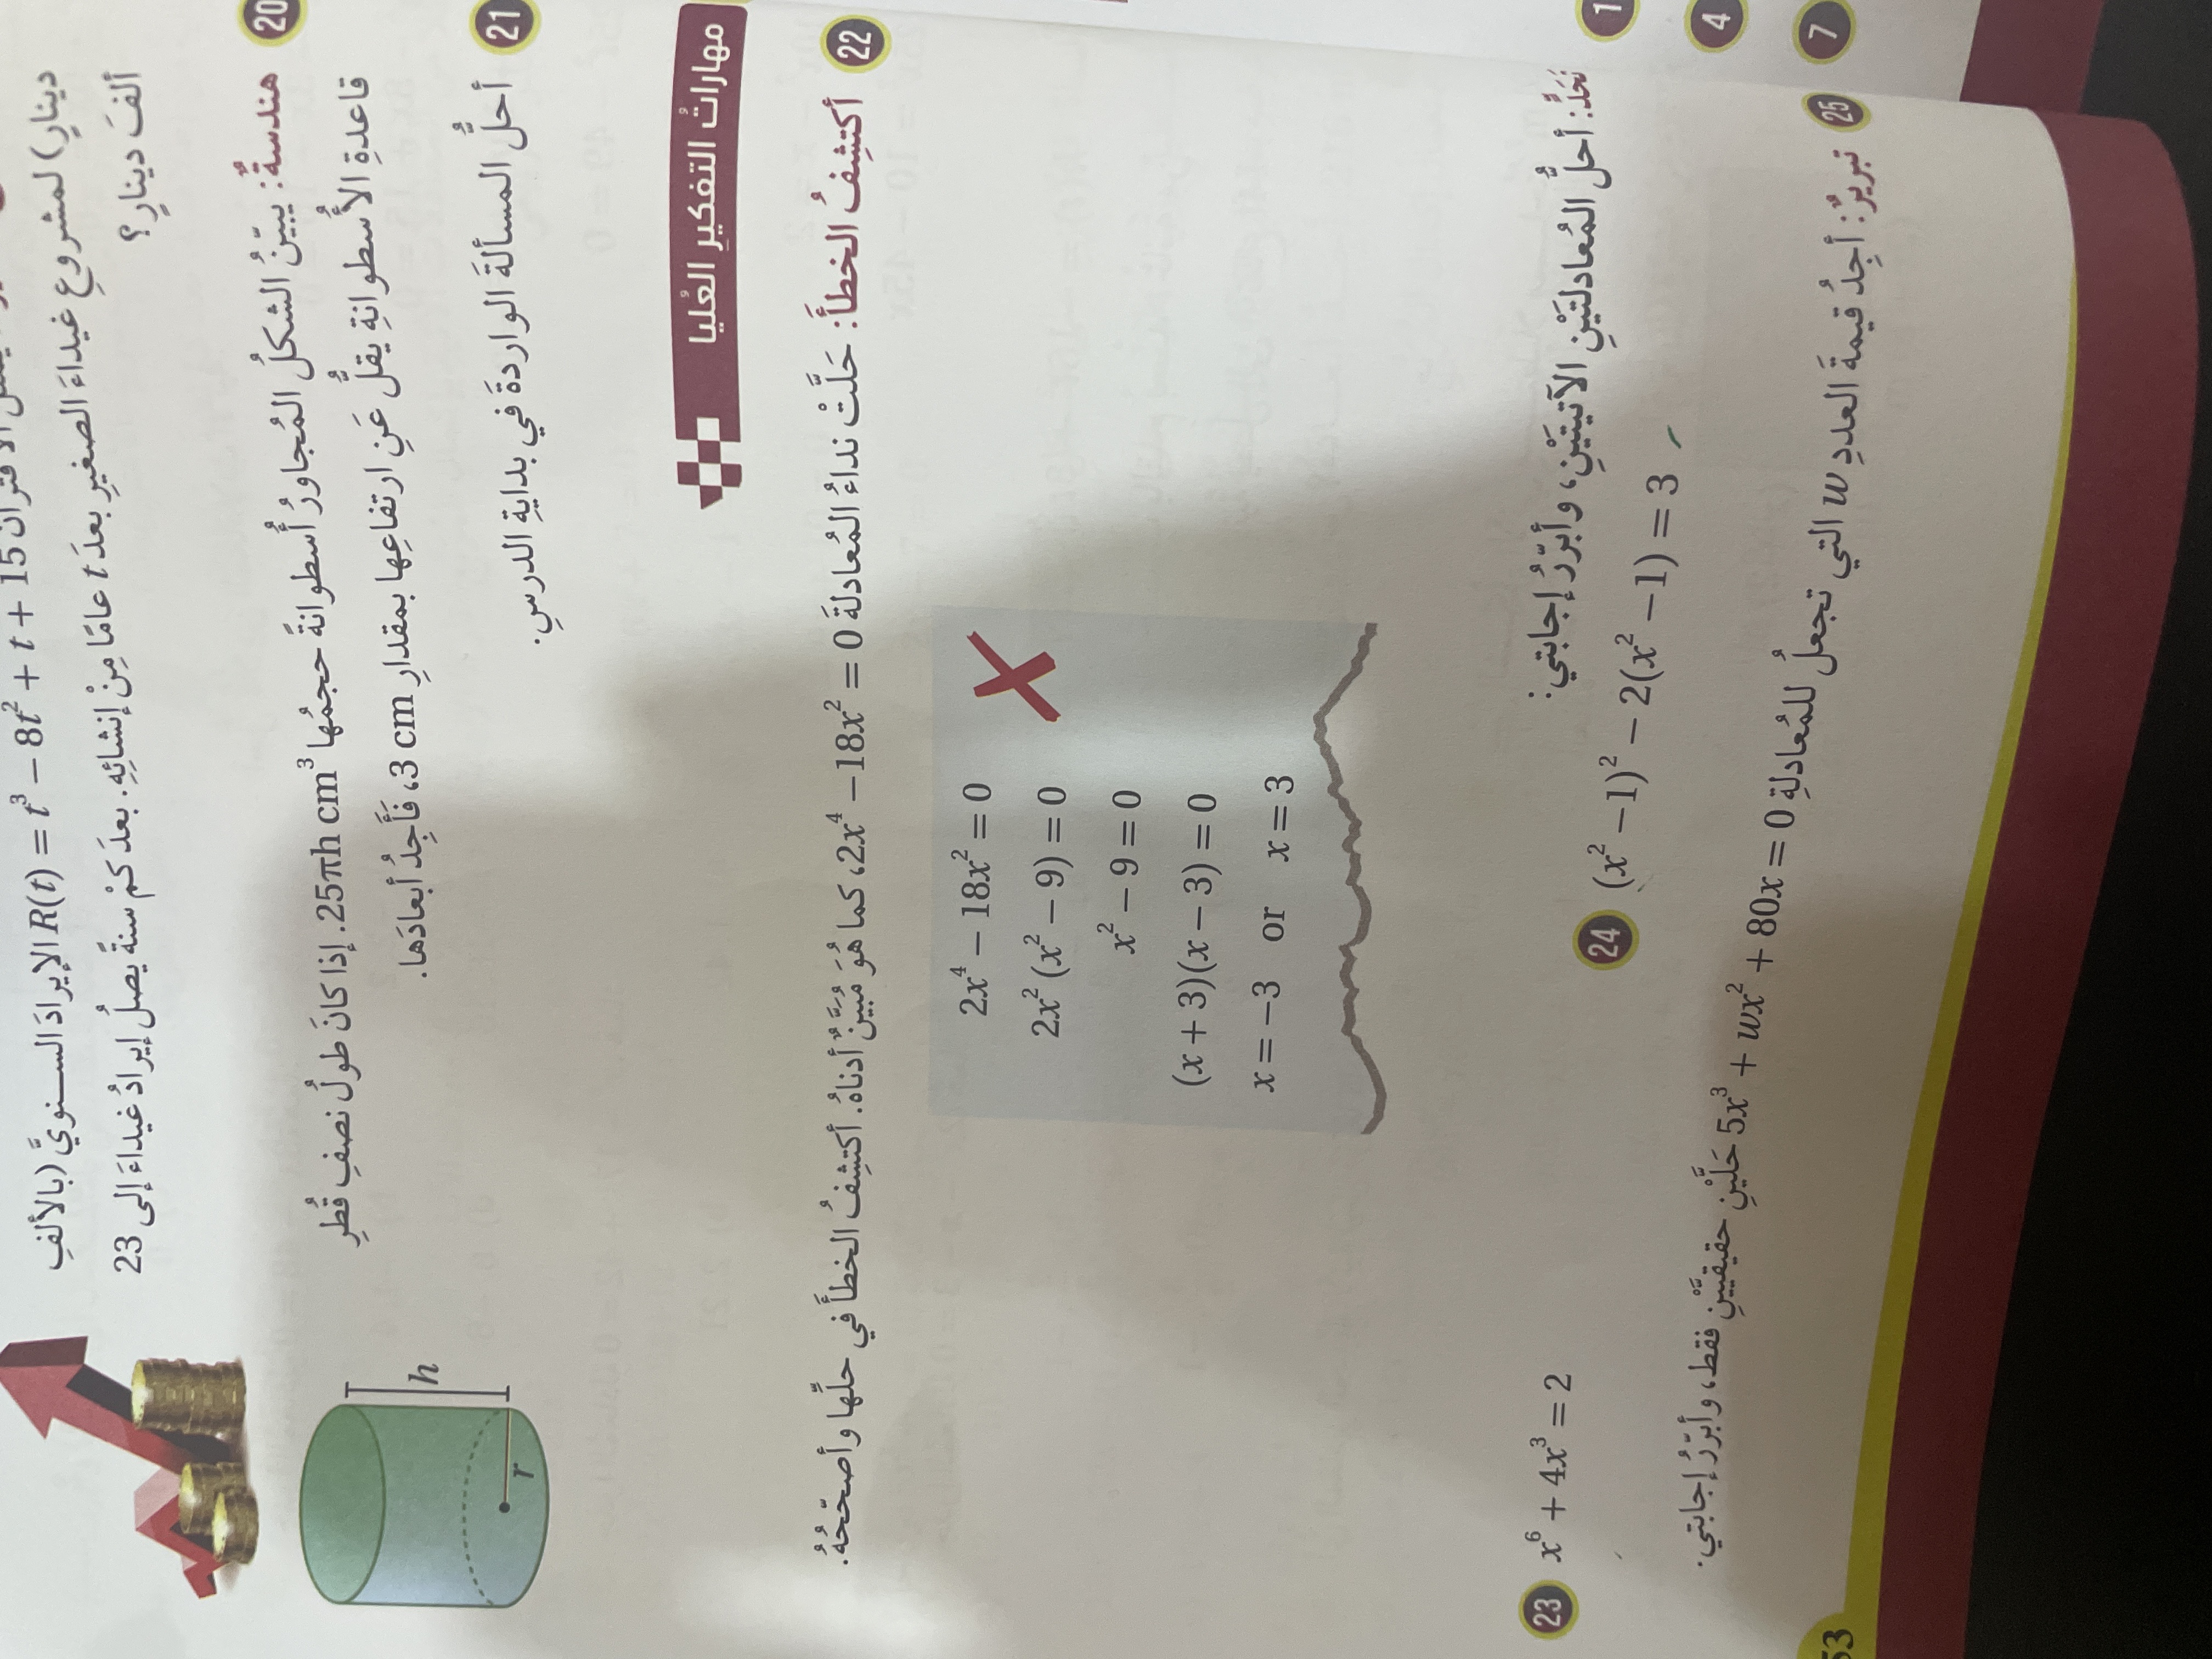 R(t) = t³ − 8t² + t + 15
دينارٍ) لمشروعِ غيداءَ الصغيرِ بعدَ t عامًا مِنْ إنشائِهِ. بعدَ كمْ سنةً يصلُ إيرادُ غيداءَ إلى 23
ألفَ دينارٍ؟
الإيرادَ السنويَّ (بالألفِ
20 هندسةٌ: يبيّنُ الشكلُ المُجاورُ أُسطوانةً حجمُها 25πh cm³. إذا كانَ طولُ نصفِ قُطرِ
قاعدةِ الأُسطوانةِ يقلُّ عَنِ ارتفاعِها بمقدارِ 3 cm، فَأَجِدُ أبعادَها.
h
r
21 أحلُّ المسألةَ الواردةَ في بدايةِ الدرسِ.
مهاراتُ التفكيرِ العُليا
22 أكتشِفُ الخطأَ: حَلَّتْ نداءُ المُعادلةَ 2x⁴ − 18x² = 0، كما هُوَ مُبيَّنٌ أدناهُ. أكتشِفُ الخطأَ في حلِّها وأصحّحُهُ.
2x⁴ − 18x² = 0
2x² (x² − 9) = 0
x² − 9 = 0
(x + 3)(x − 3) = 0
x = −3 or x = 3
تَحَدٍّ: أحلُّ المُعادلتَيْنِ الآتيتَيْنِ، وأبرّرُ إجابتي:
23 x⁶ + 4x³ = 2
24 (x² − 1)² − 2(x² − 1) = 3
25 تبريرٌ: أجِدُ قيمةَ العددِ w التي تجعلُ للمُعادلةِ 5x³ + wx² + 80x = 0 حَلَّيْنِ حقيقيَّيْنِ فقط، وأبرّرُ إجابتي.
53
1
4
7